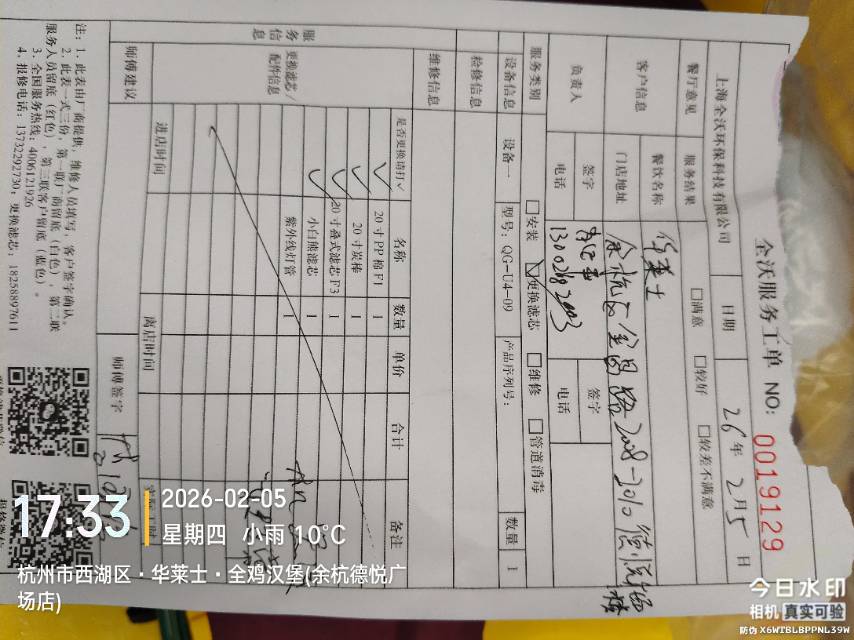 全沃服务工单 NO: 0019129
上海全沃环保科技有限公司 日期 26年2月5日
餐厅意见 服务结果 □满意 □较好 □较差不满意
客户信息 餐饮名称 华莱士
门店地址
负责人 签字 签字
电话 电话
服务类别 □安装 ☑更换滤芯 □维修 □管道消毒
设备信息 设备一 型号: QG-U4-09 产品序列号: 数量 1
检修信息
维修信息
服务信息
更换滤芯/配件信息
是否更换请打√ 名称 数量 单价 合计 备注
√ 20寸PP棉F1 1
√ 20寸炭棒 1
√ 20寸叠式滤芯F3 1
√ 小白熊滤芯 1
紫外线灯管 1
师傅建议
进店时间 离店时间
师傅签字
注: 1、此表由厂商提供, 维修人员填写, 客户签字确认。
2、此表一式三份, 第一联厂商留底(白色), 第二联
服务人员留底(红色), 第三联客户留底(蓝色)。
3、全国服务热线: 4006121926
4、报修电话: 13732292730, 更换滤芯: 18258897611
17:33
2026-02-05
星期四 小雨 10℃
杭州市西湖区·华莱士·全鸡汉堡(余杭德悦广
场店)
今日水印
相机 真实可验
防伪 X6WTBLBPPNL39W